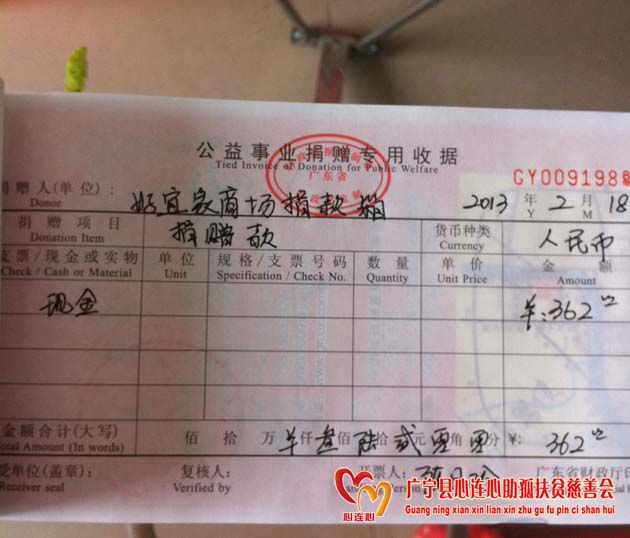 公益事业捐赠专用收据
Tied Invoice of Donation for Public Welfare
广东省
GY009198
捐赠人(单位): 好宜家商场捐款箱 2013 年 2 月 18
Donor Y M
捐赠项目 捐赠款 货币种类 人民币
Donation Item Currency
支票/现金或实物 单位 规格/支票号码 数量 单价 金额
Check / Cash or Material Unit Specification / Check No. Quantity Unit Price Amount
现金 羊:362
金额合计(大写) 佰 拾 万 羊 仟 叁 佰 陆 拾 贰 元 零 角 零 分 ¥: 362
Total Amount (In words)
受单位(盖章): 复核人: 开票人: 广东省财政厅印
Receiver seal Verified by Person
心连心
广宁县心连心助孤扶贫慈善会
Guang ning xian xin lian xin zhu gu fu pin ci shan hui